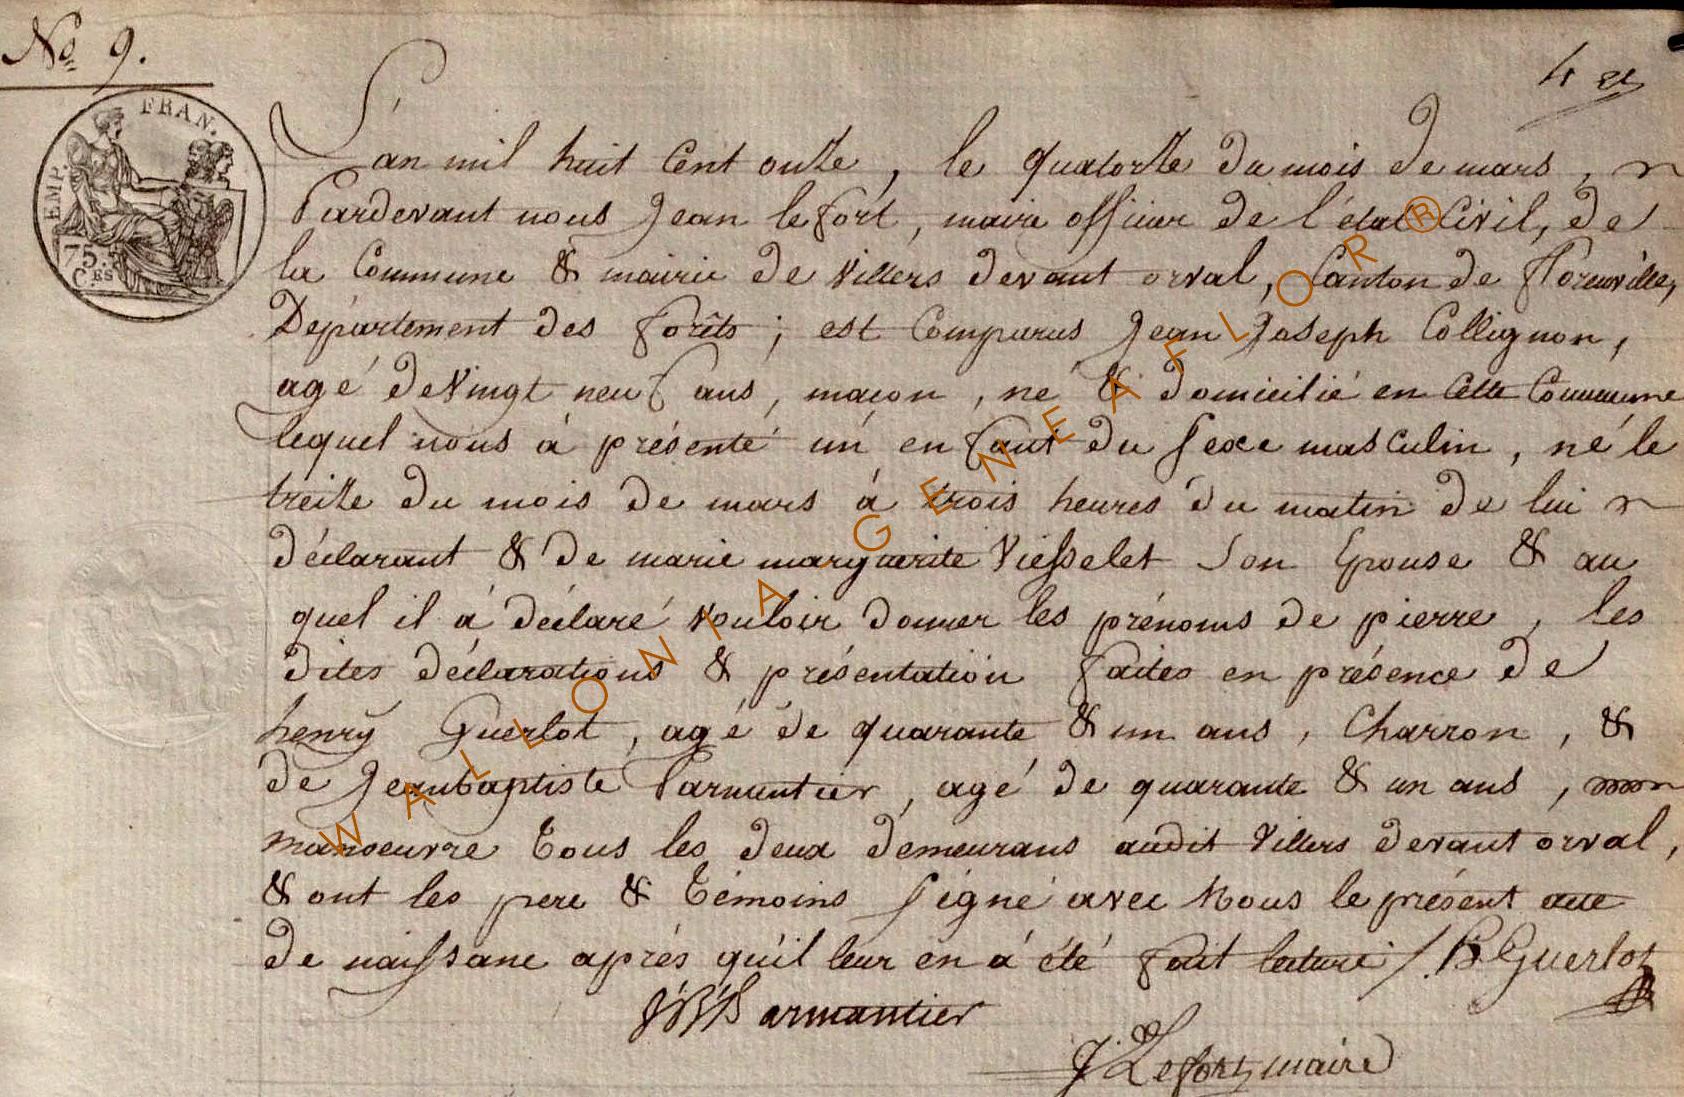 No 9.
4
EMP. FRAN.
75.
C.ES
L'an mil huit Cent onze, le quatorze du mois de mars,
Pardevant nous Jean lefort, maire officier de l'état Civil, de
la Commune & mairie de Villers devant orval, Canton de florenville,
Département des forêts; est Comparus Jean Joseph Collignon,
agé de Vingt neuf ans, maçon, né & domicilié en Cette Commune
lequel nous à présenté un enfant du sexe masculin, né le
treize du mois de mars à trois heures du matin de lui
déclarant & de marie marguerite Viesselet Son Epouse & au
quel il à déclaré vouloir donner les prénoms de pierre, les
dites déclarations & présentation faites en présence de
henry Guerlot, agé de quarante & un ans, Charron, &
de Jeanbaptiste Parmentier, agé de quarante & un ans,
manoeuvre tous les deux demeurans audit Villers devant orval,
& ont les pere & témoins signé avec Nous le présent acte
de naissance aprés qu'il leur en à été fait lecture / H Guerlot
JB Parmantier
J. Lefort maire
WALLONIA - GENEAFLOR ®